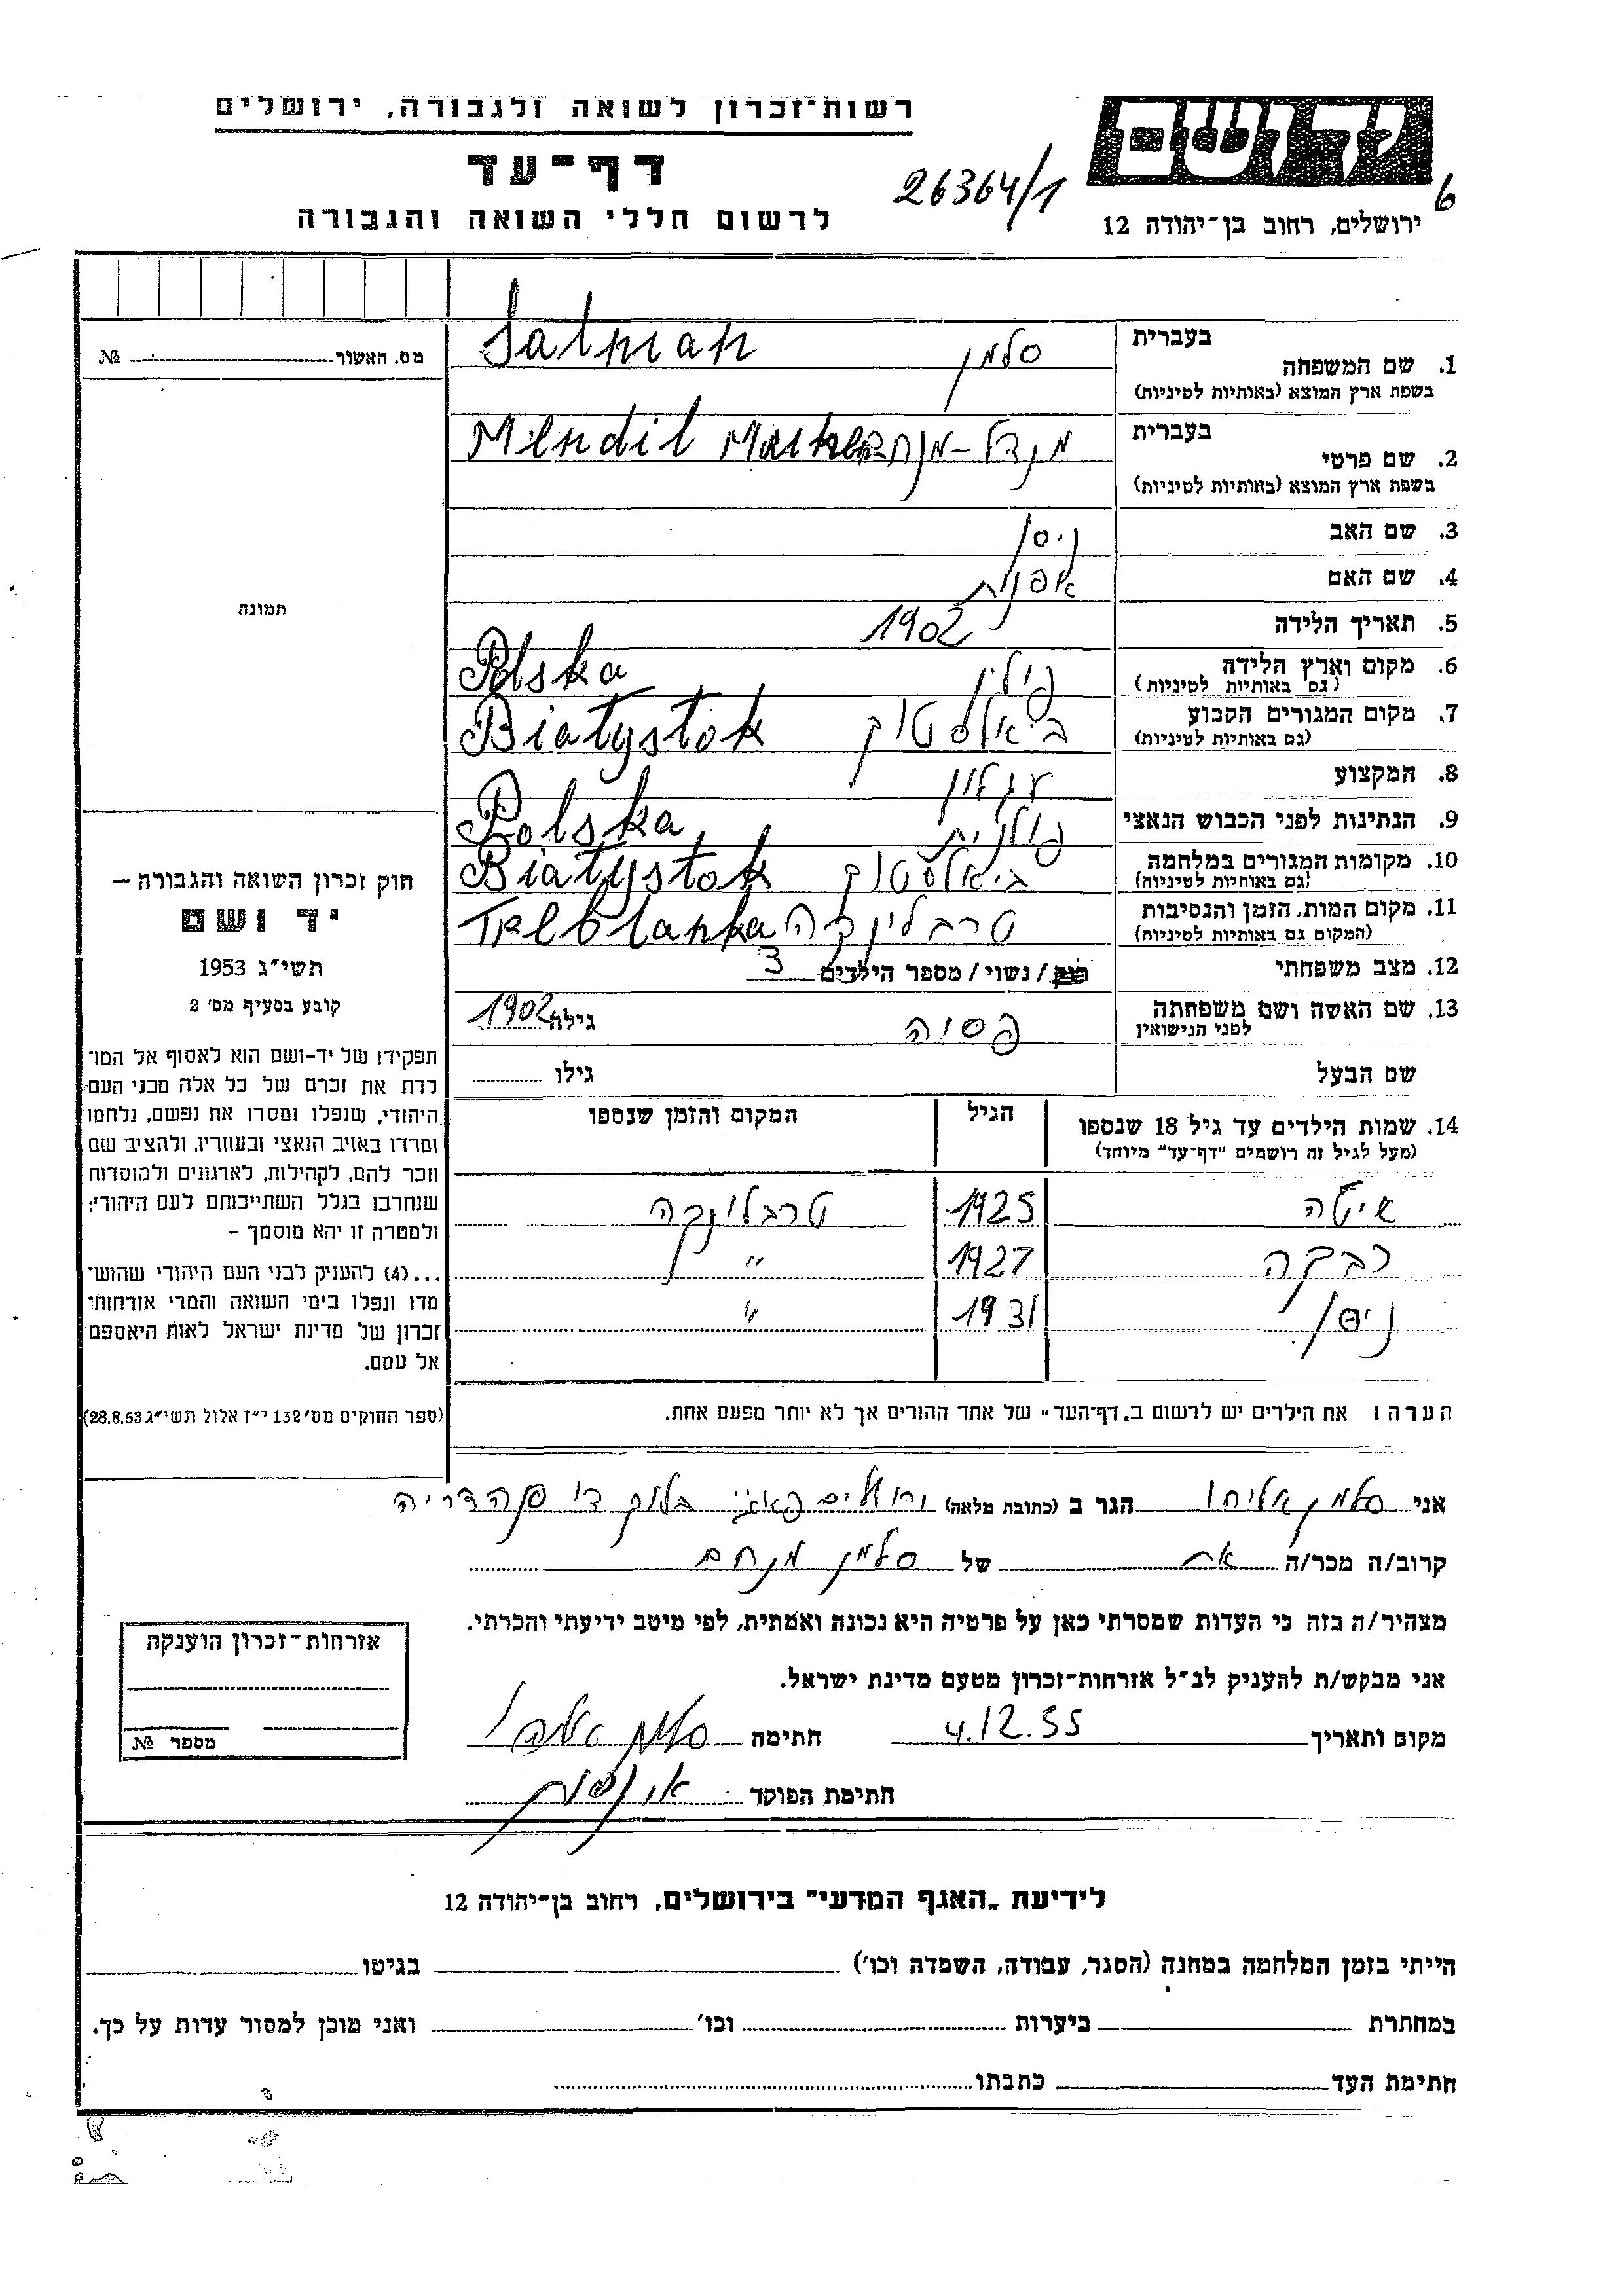 רשות־זכרון לשואה ולגבורה, ירושלים
יד ושם
דף־עד
26364/1
6
לרשום חללי השואה והגבורה
ירושלים, רחוב בן־יהודה 12
מס. האשור № 
1. שם המשפחה בעברית סלמן Salman
בשפת ארץ המוצא (באותיות לטיניות)
2. שם פרטי בעברית מנדל – מנחם Mendil
בשפת ארץ המוצא (באותיות לטיניות)
3. שם האב ניסן
4. שם האם
5. תאריך הלידה 1902
6. מקום וארץ הלידה פולין Polska
(גם באותיות לטיניות)
7. מקום המגורים הקבוע ביאלסטוק Białystok
(גם באותיות לטיניות)
8. המקצוע עגלון
9. הנתינות לפני הכבוש הנאצי פולנית Polska
10. מקומות המגורים במלחמה ביאלסטוק Białystok
(גם באותיות לטיניות)
11. מקום המות, הזמן והנסיבות טרבלינקה Treblanka
(המקום גם באותיות לטיניות)
12. מצב משפחתי רוק / נשוי / מספר הילדים 3
13. שם האשה ושם משפחתה פסוה גילה 1902
לפני הנישואין
שם הבעל גילו
14. שמות הילדים עד גיל 18 שנספו הגיל המקום והזמן שנספו
(מעל לגיל זה רושמים "דף־עד" מיוחד)
איטה 1925 טרבלינקה
רבקה 1927 "
ניסן 1931 "
הערה: את הילדים יש לרשום ב„דף־העד" של אחד ההורים אך לא יותר מפעם אחת.
תמונה
חוק זכרון השואה והגבורה –
יד ושם
תשי"ג 1953
קובע בסעיף מס' 2
תפקידו של יד-ושם הוא לאסוף אל המו־
לדת את זכרם של כל אלה מבני העם
היהודי, שנפלו ומסרו את נפשם, נלחמו
ומרדו באויב הנאצי ובעוזריו, ולהציב שם
וזכר להם, לקהילות, לארגונים ולמוסדות
שנחרבו בגלל השתייכותם לעם היהודי;
ולמטרה זו יהא מוסמך –
...(4) להעניק לבני העם היהודי שהוש־
מדו ונפלו בימי השואה והמרי אזרחות־
זכרון של מדינת ישראל לאות היאספם
אל עמם.
(ספר החוקים מס' 132 י"ז אלול תשי"ג 28.8.53)
אני סלמן אליהו הגר ב (כתובת מלאה) ירושלים בלוק סנהדריה
קרוב/ה מכר/ה אח של סלמן מנחם
מצהיר/ה בזה כי העדות שמסרתי כאן על פרטיה היא נכונה ואמתית, לפי מיטב ידיעתי והכרתי.
אני מבקש/ת להעניק לנ"ל אזרחות־זכרון מטעם מדינת ישראל.
מקום ותאריך 4.12.55 חתימה סלמן אליהו
חתימת הפוקד
אזרחות־זכרון הוענקה
מספר №
לידיעת „האגף המדעי" בירושלים, רחוב בן־יהודה 12
הייתי בזמן המלחמה במחנה (הסגר, עבודה, השמדה וכו') בגיטו
במחתרת ביערות וכו' ואני מוכן למסור עדות על כך.
חתימת העד כתבתו